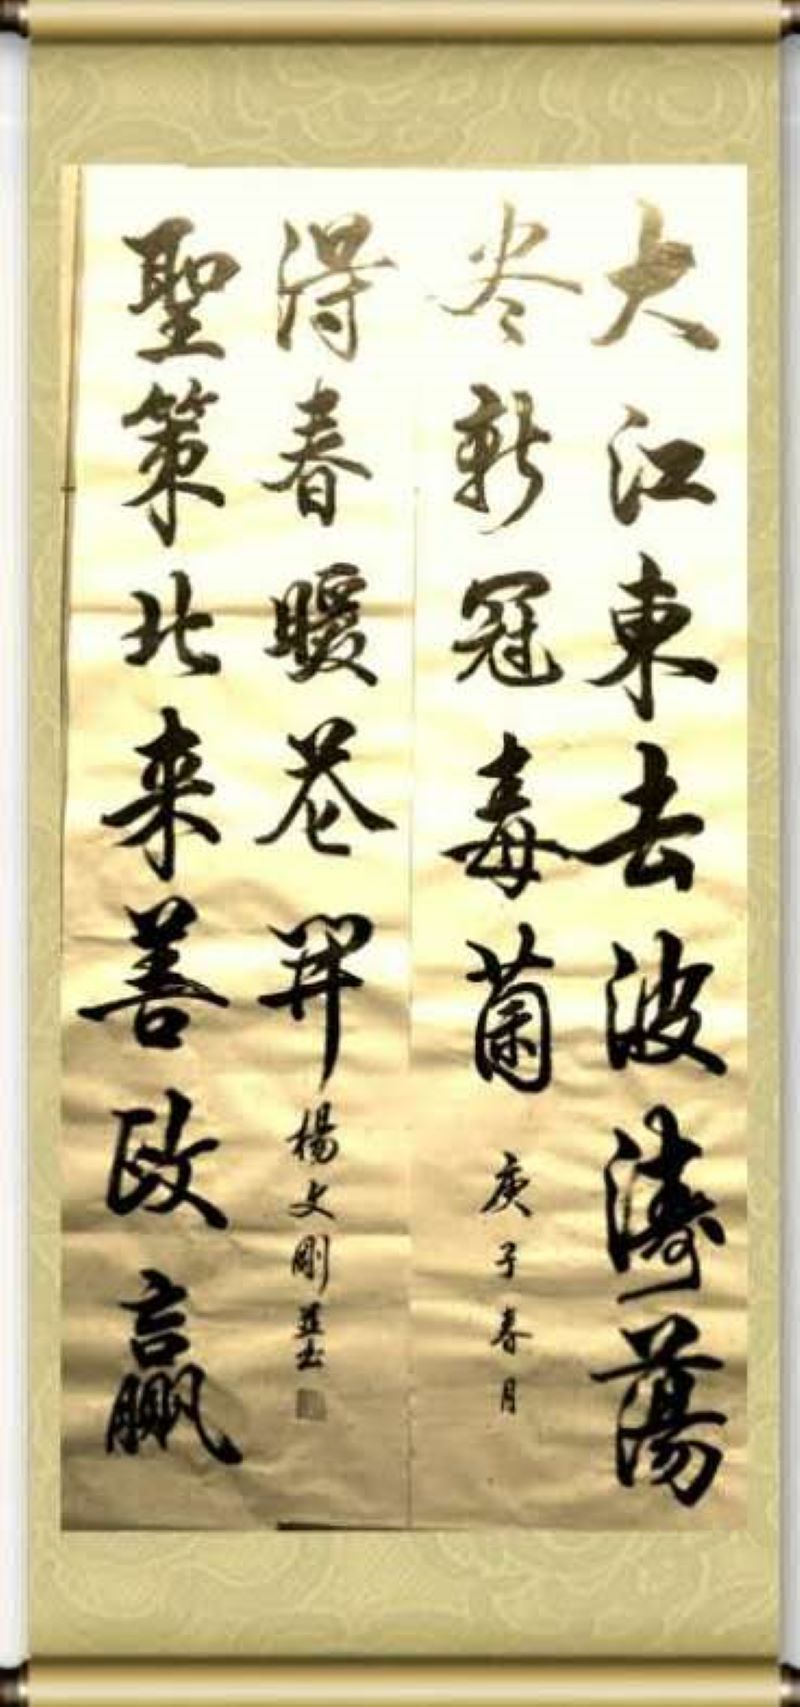 大江東去波濤蕩
尽新冠毒菌
庚子春月
聖策北来善政贏
得春暖花開
楊文剛並书